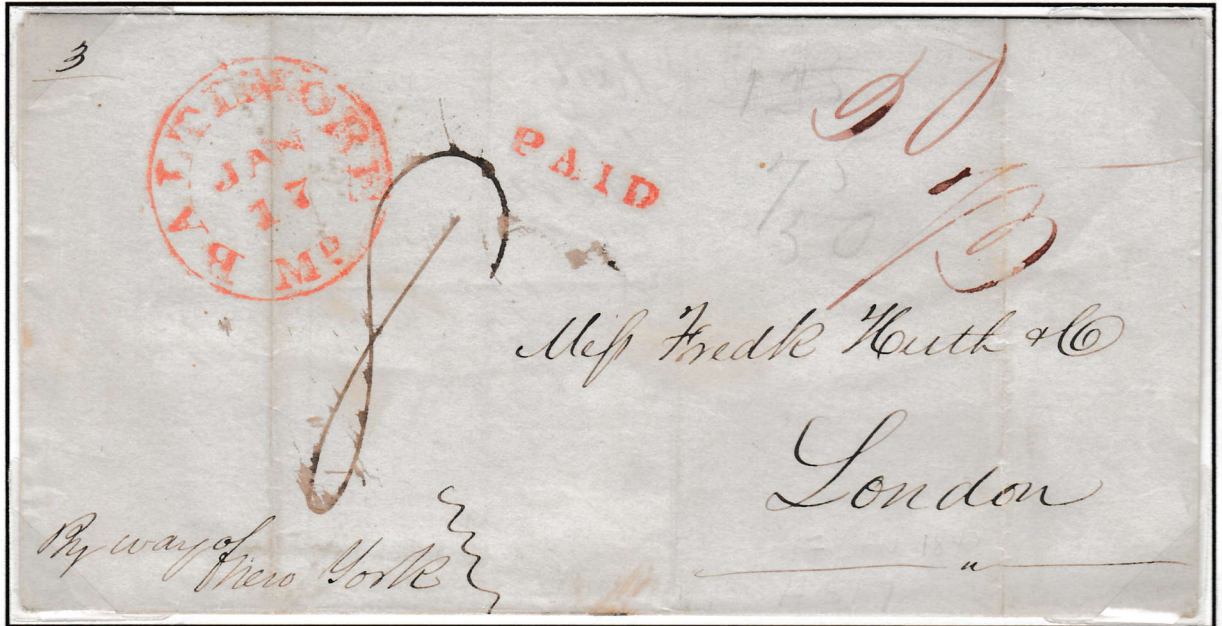 3
BALTIMORE Md
JAN
17
PAID
8
Mess Fredk Huth & Co
London
By way of
New York